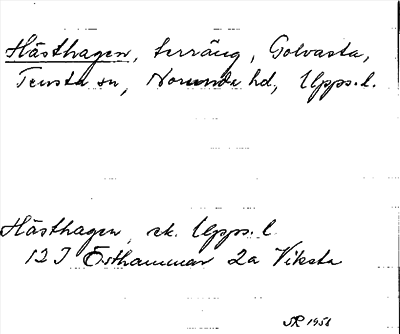 Hästhagen, terräng, Golvasta,
Tensta sn, Norunda hd, Upps. l.
Hästhagen, ek. Upps. l.
12 I Östhammar 2a Viksta
SR 1958